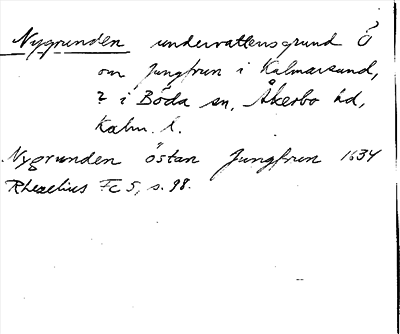 Nygrunden undervattensgrund Ö
om Jungfrun i Kalmarsund,
? i Böda sn, Åkerbo hd,
Kalm. l.
Nygrunden östan Jungfrun 1634
Rhezelius Fc 5, s. 98.